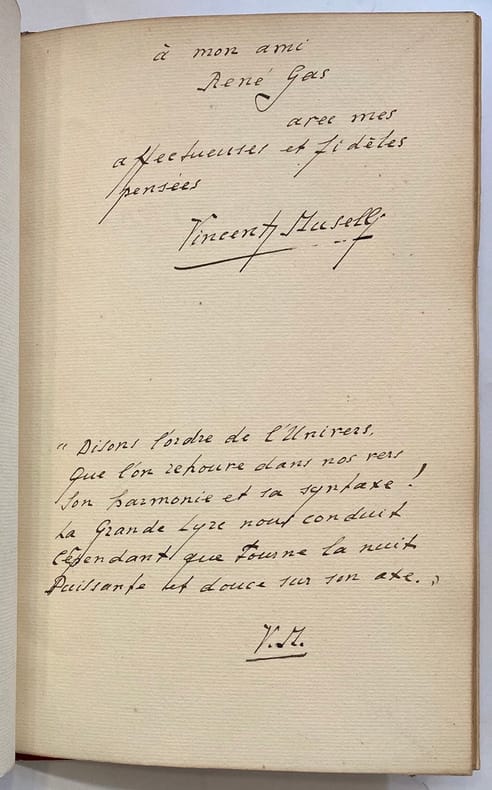 à mon ami
René Gas
avec mes
affectueuses et fidèles
pensées
Vincent Muselli
" Disons l'ordre de l'Univers,
Que l'on retrouve dans nos vers
Son harmonie et sa syntaxe !
La Grande Lyre nous conduit
Cependant que Tourne la nuit
Puissante et douce sur son axe. "
V. M.